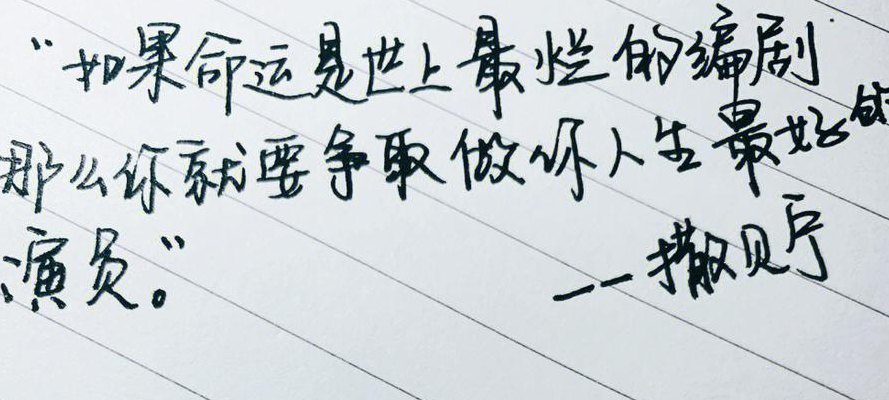 “如果命运是世上最烂的编剧
那么你就要争取做你人生最好的
演员。”
——撒贝宁